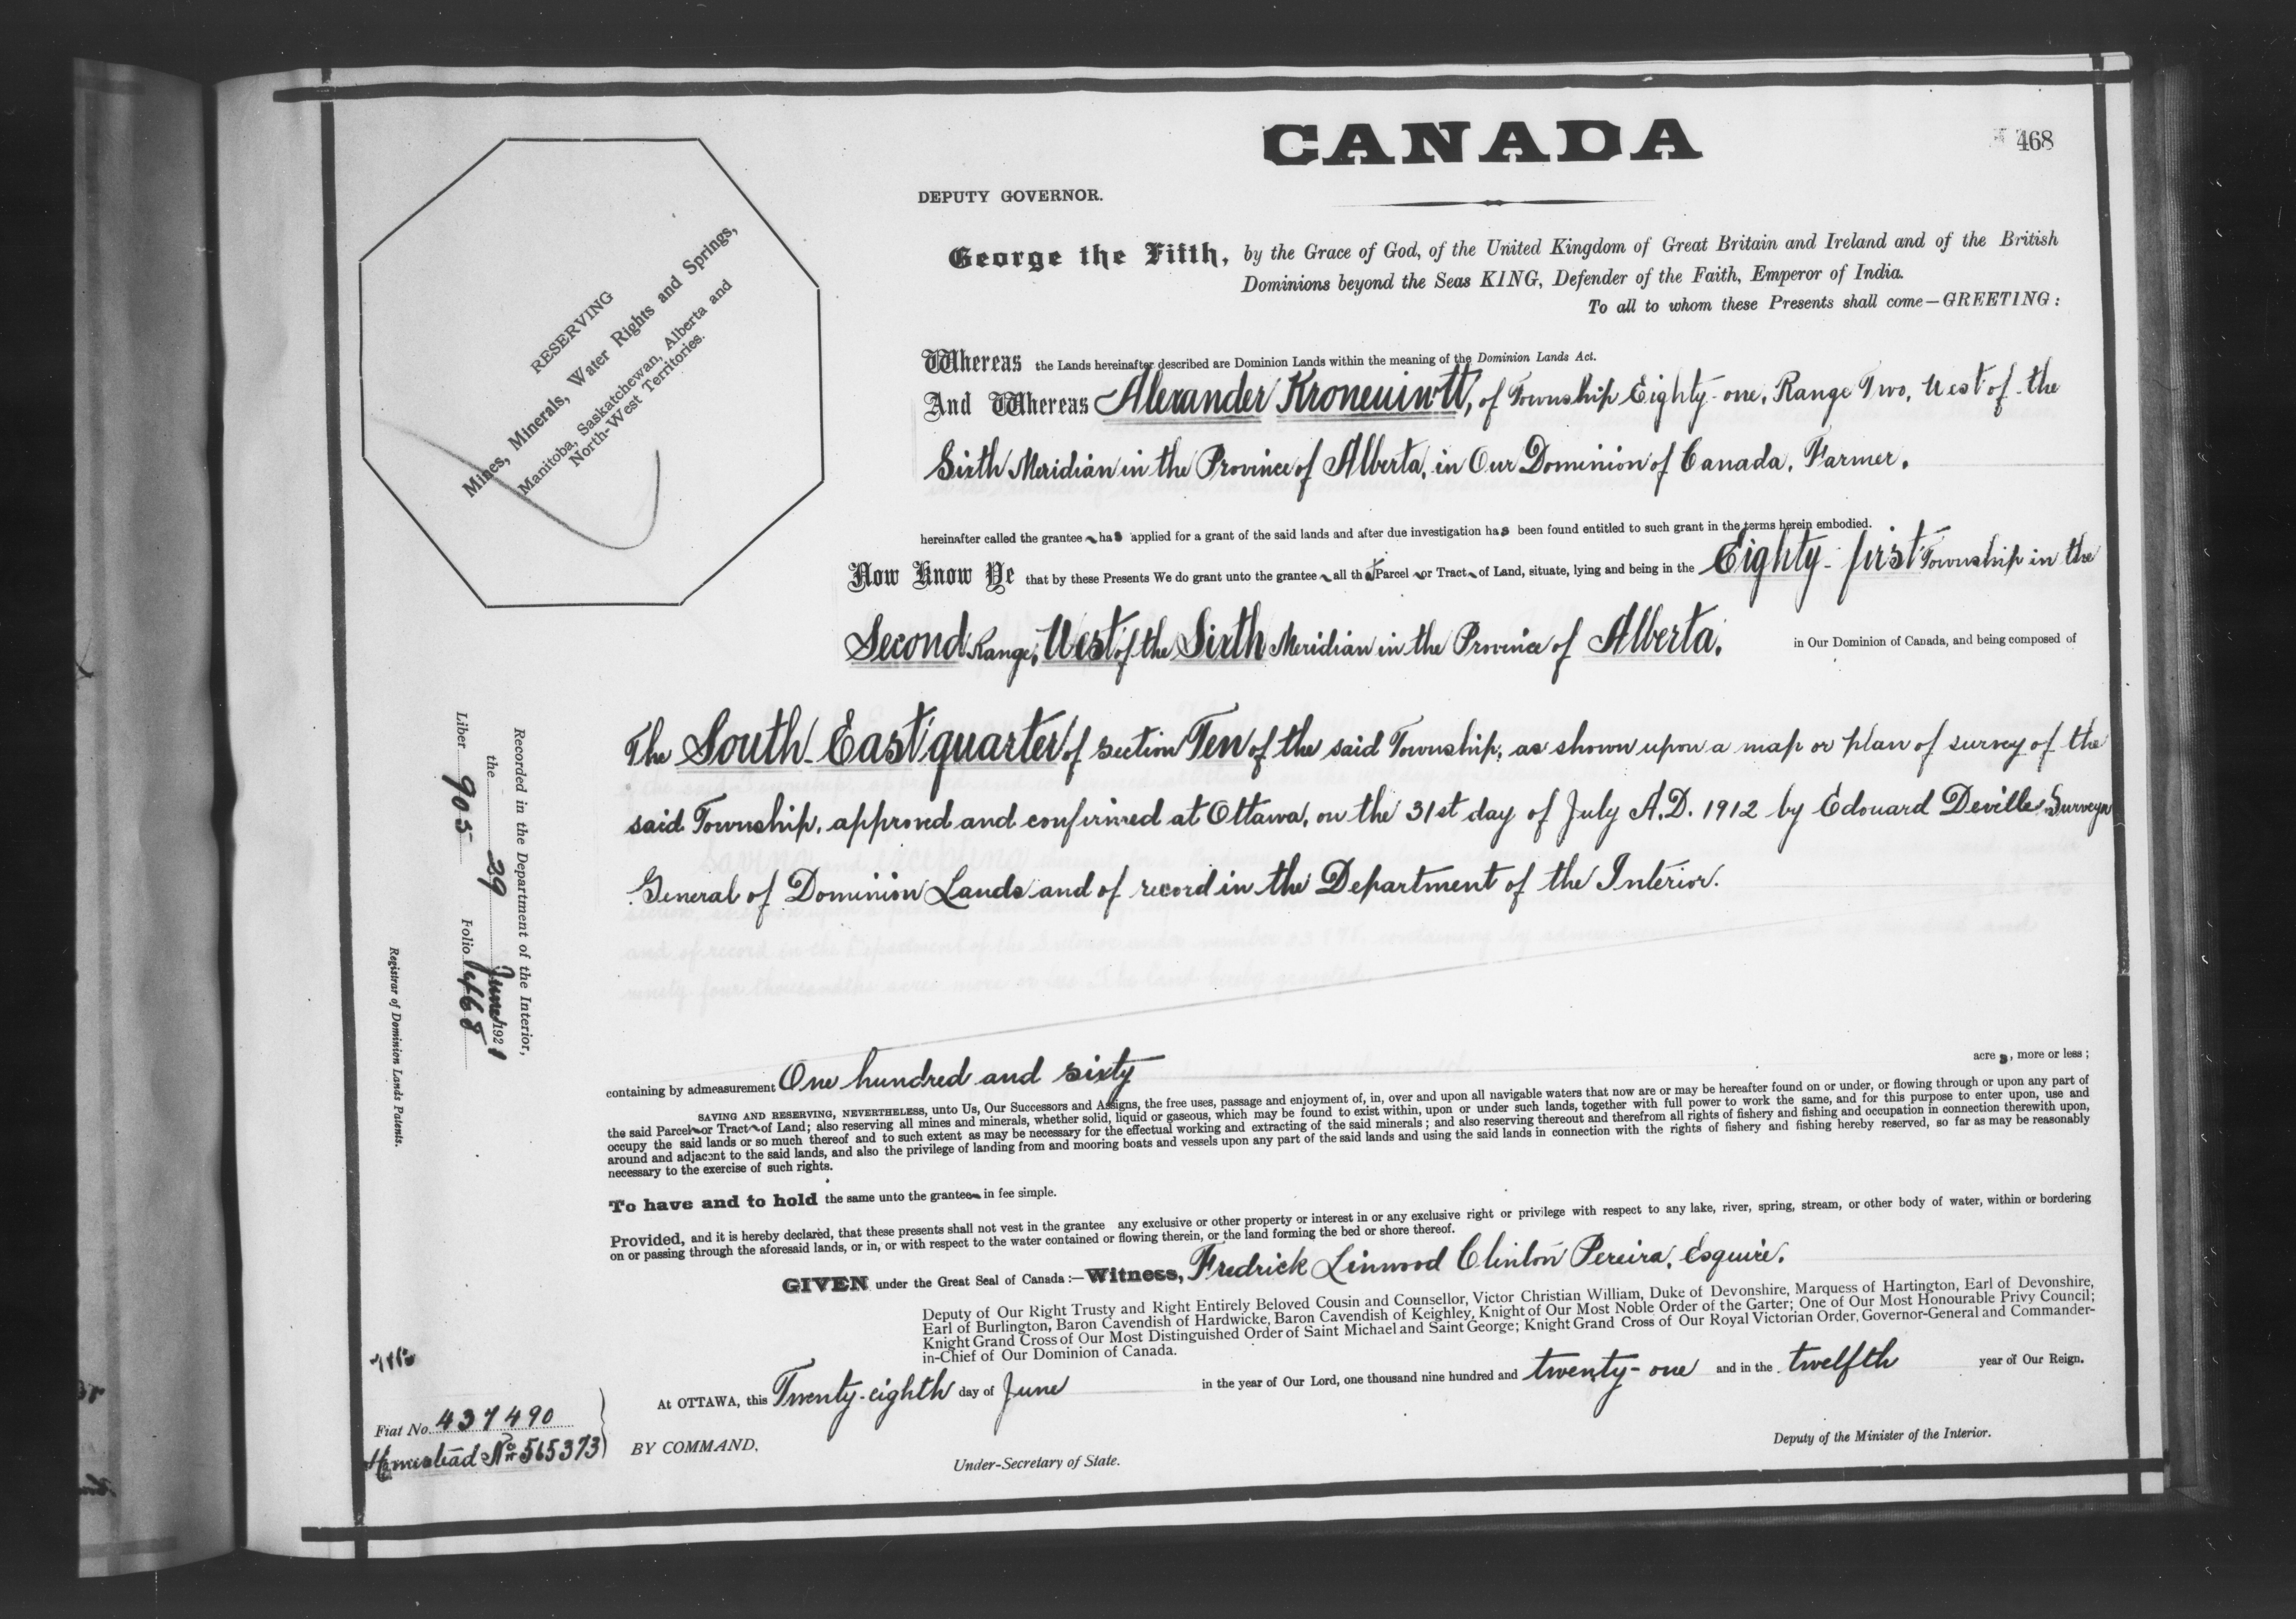 CANADA
468
DEPUTY GOVERNOR.
George the Fifth, by the Grace of God, of the United Kingdom of Great Britain and Ireland and of the British
Dominions beyond the Seas KING, Defender of the Faith, Emperor of India.
To all to whom these Presents shall come—GREETING:
RESERVING
Mines, Minerals, Water Rights and Springs,
Manitoba, Saskatchewan, Alberta and
North-West Territories.
Whereas the Lands hereinafter described are Dominion Lands within the meaning of the Dominion Lands Act.
And Whereas Alexander of Township Eighty-one, Range Two, West of the
Sixth Meridian in the Province of Alberta, in Our Dominion of Canada, Farmer.
hereinafter called the grantee has applied for a grant of the said lands and after due investigation has been found entitled to such grant in the terms herein embodied.
Now Know Ye that by these Presents We do grant unto the grantee all that Parcel or Tract of Land, situate, lying and being in the Eighty-first Township in the
Second Range, West of the Sixth Meridian in the Province of Alberta, in Our Dominion of Canada, and being composed of
The South East quarter of section Ten of the said Township, as shown upon a map or plan of survey of the
said Township, approved and confirmed at Ottawa, on the 31st day of July A.D. 1912 by Edouard Deville Surveyor
General of Dominion Lands and of record in the Department of the Interior.
Recorded in the Department of the Interior,
the 29 June 1921
Liber 905 Folio 468
Registrar of Dominion Lands Patents.
containing by admeasurement One hundred and sixty acres, more or less;
SAVING AND RESERVING, NEVERTHELESS, unto Us, Our Successors and Assigns, the free uses, passage and enjoyment of, in, over and upon all navigable waters that now are or may be hereafter found on or under, or flowing through or upon any part of
the said Parcel or Tract of Land; also reserving all mines and minerals, whether solid, liquid or gaseous, which may be found to exist within, upon or under such lands, together with full power to work the same, and for this purpose to enter upon, use and
occupy the said lands or so much thereof and to such extent as may be necessary for the effectual working and extracting of the said minerals; and also reserving thereout and therefrom all rights of fishery and fishing and occupation in connection therewith upon,
around and adjacent to the said lands, and also the privilege of landing from and mooring boats and vessels upon any part of the said lands and using the said lands in connection with the rights of fishery and fishing hereby reserved, so far as may be reasonably
necessary to the exercise of such rights.
To have and to hold the same unto the grantee in fee simple.
Provided, and it is hereby declared, that these presents shall not vest in the grantee any exclusive or other property or interest in or any exclusive right or privilege with respect to any lake, river, spring, stream, or other body of water, within or bordering
on or passing through the aforesaid lands, or in, or with respect to the water contained or flowing therein, or the land forming the bed or shore thereof.
GIVEN under the Great Seal of Canada:—Witness, Fredrick Linwood Clinton Pereira, Esquire.
Deputy of Our Right Trusty and Right Entirely Beloved Cousin and Counsellor, Victor Christian William, Duke of Devonshire, Marquess of Hartington, Earl of Devonshire,
Earl of Burlington, Baron Cavendish of Hardwicke, Baron Cavendish of Keighley, Knight of Our Most Noble Order of the Garter; One of Our Most Honourable Privy Council;
Knight Grand Cross of Our Most Distinguished Order of Saint Michael and Saint George; Knight Grand Cross of Our Royal Victorian Order, Governor-General and Commander-
in-Chief of Our Dominion of Canada.
At OTTAWA, this Twenty-eighth day of June in the year of Our Lord, one thousand nine hundred and twenty-one and in the twelfth year of Our Reign.
Fiat No. 437490
Homestead No 565373
BY COMMAND,
Under-Secretary of State.
Deputy of the Minister of the Interior.